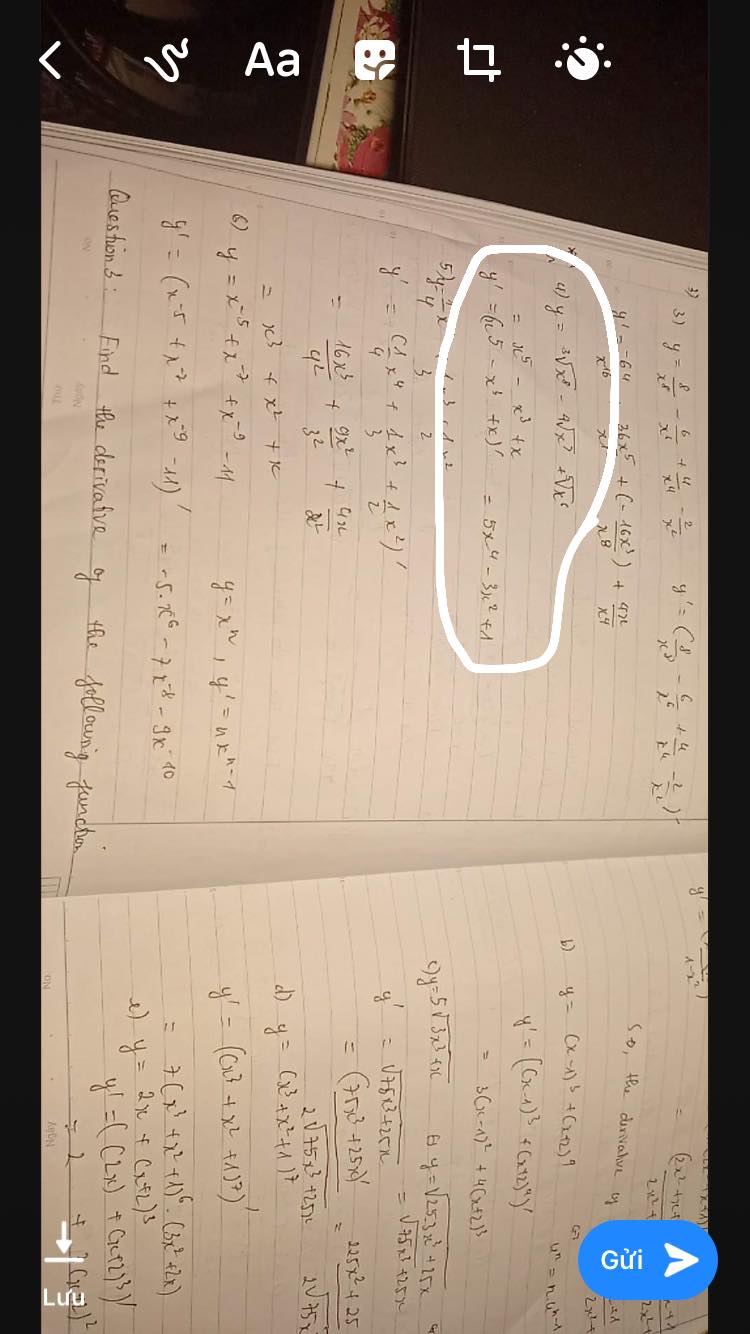 3)
3) y = 8/x⁸ - 6/x⁶ + 4/x⁴ - 2/x² y' = (8/x⁸ - 6/x⁶ + 4/x⁴ - 2/x²)'
4) y = ³√x⁸ - ⁴√x⁷ + ⁵√x⁶
= x⁵ - x³ + x
y' = (x⁵ - x³ + x)' = 5x⁴ - 3x² + 1
5) y =
y' = (1/4 x⁴ + 1/3 x³ + 1/2 x²)'
= 16x³/4² + 9x²/3² + 4x/2²
= x³ + x² + x
6) y = x⁻⁵ + x⁻⁷ + x⁻⁹ - 11 y = xⁿ, y' = nxⁿ⁻¹
y' = (x⁻⁵ + x⁻⁷ + x⁻⁹ - 11)' = -5.x⁶ - 7x⁻⁸ - 9x⁻¹⁰
Question 3: Find the derivative of the following function
So, the derivative of
b) y = (x-1)³ + (x+2)⁴
uⁿ = n.uⁿ⁻¹
y' = ((x-1)³ + (x+2)⁴)'
= 3(x-1)² + 4(x+2)³
c) y = 5√3x³+x y = √25.3x³+25x
= √75x³+25x
y' = √75x³+25x
= (75x³+25x)'/2√75x³+25x = 225x²+25
d) y = (x³+x²+1)⁷
y' = ((x³+x²+1)⁷)'
= 7(x³+x²+1)⁶.(3x²+2x)
e) y = 2x + (x+2)³
y' = ((2x) + (x+2)³)'
= 2 + 3(x+2)²
Aa
Gửi
Lưu
No
Ngày
Thứ
No
Ngày